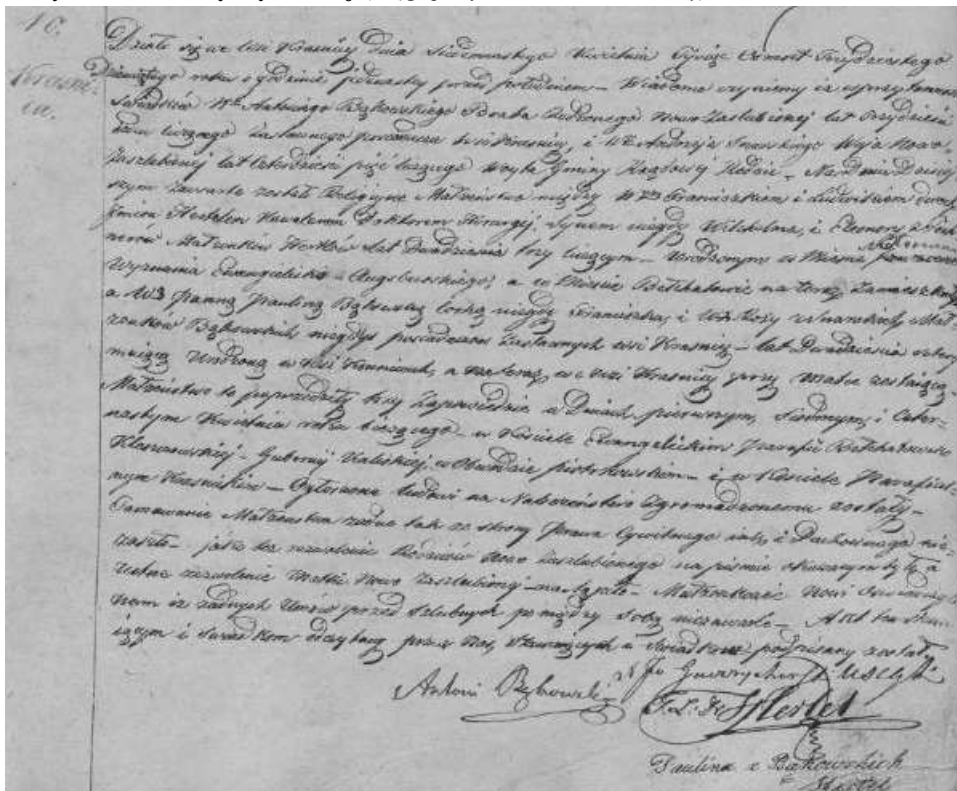 10.
Kraśnica.
Działo się we wsi Kraśnicy Dnia Siedemnastego Kwietnia Tysiąc Osmset Trzydziestego
Dziewiątego roku o godzinie jedenastej przed południem – Wiadomo czynimy iż w przytomności
Świadków W. Antoniego Bąkowskiego Brata Rodzonego Nowo Zaślubionej lat Trzydzieści
liczącego Zastawnego i W. Andrzeja Wuja Nowo-
zaślubionej lat Czterdzieści pięć liczącego Wojta Gminy – Na Dniu Dzisiej-
szym zawarte zostało Religijne Małżeństwo między W. Franciszkiem i Ludwikiem dwoch
Imion Hertlem Kawalerem Doktorem Synem niegdy Wilhelma, i Eleonory z
Małżonków Hertlów lat Dwadzieścia trzy liczącym – urodzonym w Mieście
Wyznania Ewangelicko-Augsburskiego, a w Mieście Bełchatowie na teraz Zamieszkałym
a W. Panną Pauliną Bąkowską Córką niegdy Franciszka, i Róży Mał-
żonków Bąkowskich, niegdyś Zastawnych wsi Kraśnicy – lat Dwadzieścia cztery
mającą Urodzoną w Wsi a na teraz we wsi Kraśnicy przy Matce zostającą –
Małżeństwo to poprzedziły trzy Zapowiedzie w Dniach pierwszym, Siodmym, i Czter-
nastym Kwietnia roku bieżącego – w Kościele Ewangelickim Parafii Bełchatowsko
Kleszczowskiej – Gubernij Kaliskiej, w Obwodzie piotrkowskim – i w Kościele Parafial-
nym Kraśnickim – Ogłoszone ludowi na Nabożeństwo Zgromadzonemu zostały –
Tamowanie Małżeństwa żadne tak ze strony Prawa Cywilnego jak i Duchownego nie
zaszło – jako też zezwolenie Rodziców Nowo Zaślubionego na piśmie a
ustne zezwolenie Matki Nowo Zaślubionej nastąpiło – Małżonkowie Nowi
iż żadnych Umów przed Szlubnych pomiędzy sobą niezawarli – Akt ten Sta-
jącym i Świadkom odczytany przez Nas, Stawających i Świadków podpisany został
Antoni Bąkowski
F. L. Hertel
Paulina z Bąkowskich
Hertel